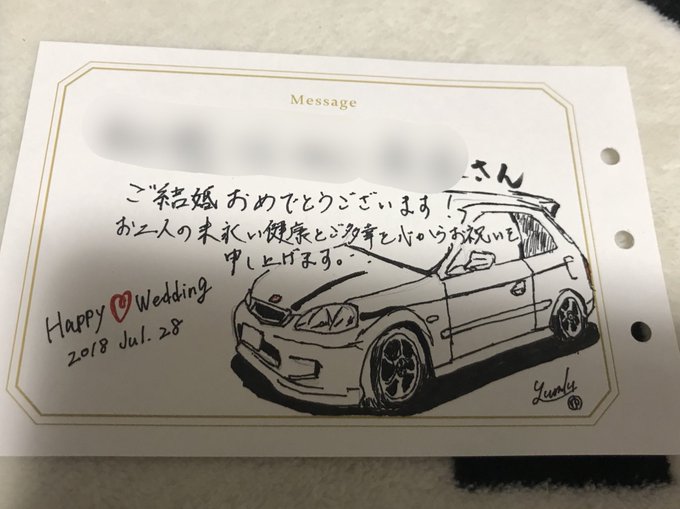 Message
さん
ご結婚おめでとうございます!
お二人の末永い健康とご多幸を心からお祝いを
申し上げます。
Happy Wedding
2018 Jul. 28